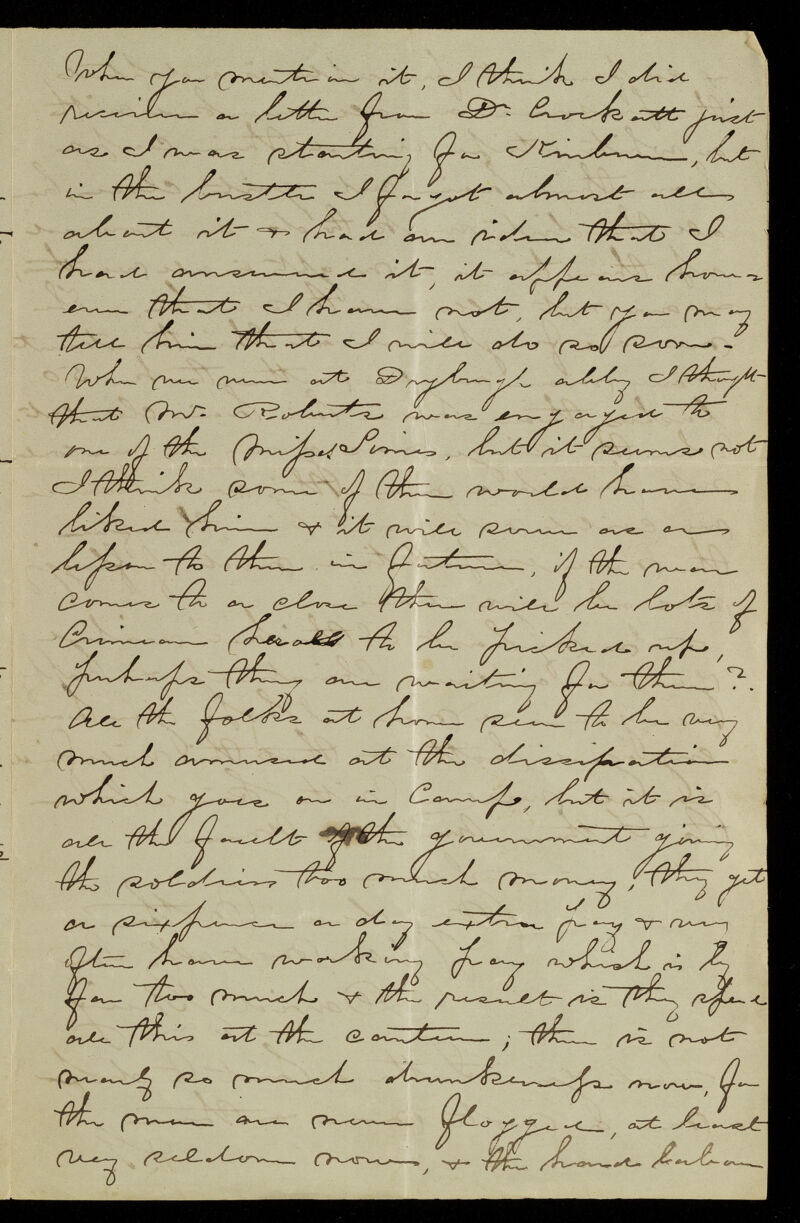 When you mention it, I think I did
receive a letter from Dr. Crockatt just
as I was starting for Kinburn, but
in the bustle I forgot almost all
about it & had an idea that I
had answered it, it appears how=
ever that I have not, but you may
tell him that I will do so soon.-
When we were at Dryburgh abbey I thought
that Mr. Roberts was engaged to
one of the Misses, but it seems not
I think some of them would have
liked him & it will serve as a
lesson to them in future, if the war
comes to a close there will be lots of
Crimean heroes to be picked up,
perhaps they are waiting for them?.
All the folks at home seem to be very
much amused at the dissipation
which goes on in Camp, but it is
all the fault of the government giving
the soldiers too much money, they get
a sixpence a day extra pay & very
often have working pay which is by
far too much & the result is they spend
all this at the canteen; there is not
nearly so much drunkenness now, for
the men are never flogged, at least
very seldom now, & the hard labour